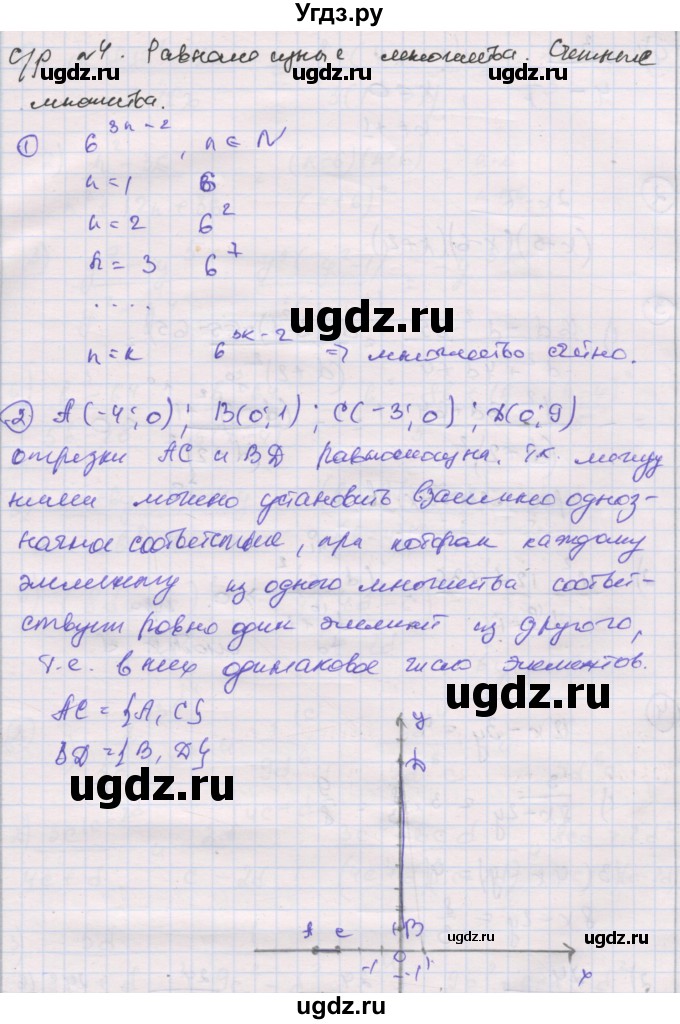 Угдз.ру
с/р №4. Равномощные множества. Счетные
ugdz.ru ugdz.ru ugdz.ru
множества.
① 6^{3n-2}, n ∈ N
n=1 6
n=2 6^2
n=3 6^7
ugdz.ru
....
ugdz.ru
n=k 6^{3k-2} => множество счётно.
② A(-4;0); B(0;1); C(-3;0); D(0;9)
отрезки AC и BD равномощны. Т.к. между
ugdz.ru ugdz.ru ugdz.ru
ними можно установить взаимно одноз-
начное соответствие, при котором каждому
элементу из одного множества соответ-
ствует ровно один элемент из другого,
т.е. в них одинаковое число элементов.
ugdz.ru
AC = {A, C}
y
BD = {B, D}
D
ugdz.ru
A C B
ugdz.ru ugdz.ru
-1 0 1
-1 x
ugdz.ru